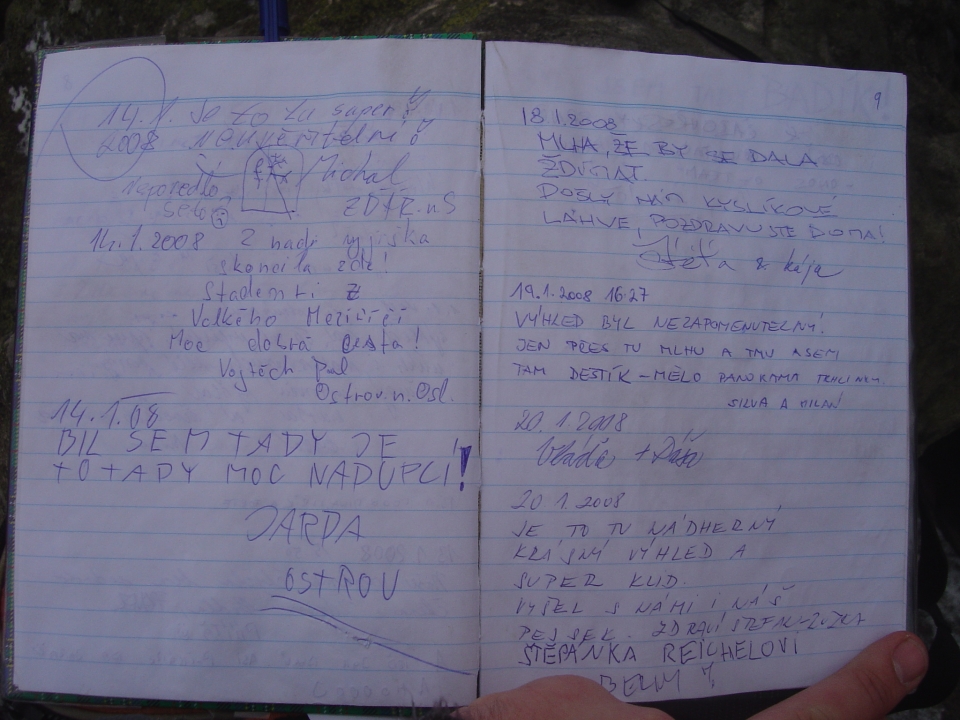 14.1. Je to tu super!
2008 neuvěřitelní!
Michal
ZĎÁR.n.S
14.1.2008 Z nádr
skončila zde!
Studenti z
Velkého Meziříčí
Moc dobrá cesta!
Vojtěch Pal
Ostrov.n.Osl.
14.1.08
BIL SEM TADY JE
TOTADY MOC NADUPCI!
JARDA
OSTROV
9
18.1.2008
MLHA, ŽE BY SE DALA
ŽDÍMAT.
DOŠLY NÁM KYSLÍKOVÉ
LÁHVE, POZDRAVUJTE DOMA!
Kája
19.1.2008 16:27
VÝHLED BYL NEZAPOMENUTELNÝ!
JEN PŘES TU MLHU A TMU A SEM
TAM DEŠTÍK - MĚLO PANORAMA TRHLINKU.
SILVA A MILAN
20.1.2008
Vláďa + Dáša
20.1.2008
JE TO TU NÁDHERNÝ
KRÁSNÝ VÝHLED A
SUPER KLID.
VYŠEL S NÁMI I NÁŠ
PEJSEK. ZDRAVÍ STEFAN-ZUZKA
ŠTĚPÁNKA REICHELOVI